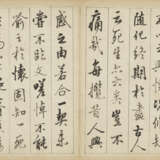 隨化終期於盡古人
云死生亦大矣豈不
痛哉每攬昔人興
感之由若合一契未
嘗不臨文嗟悼不能
喻之於懷固知一